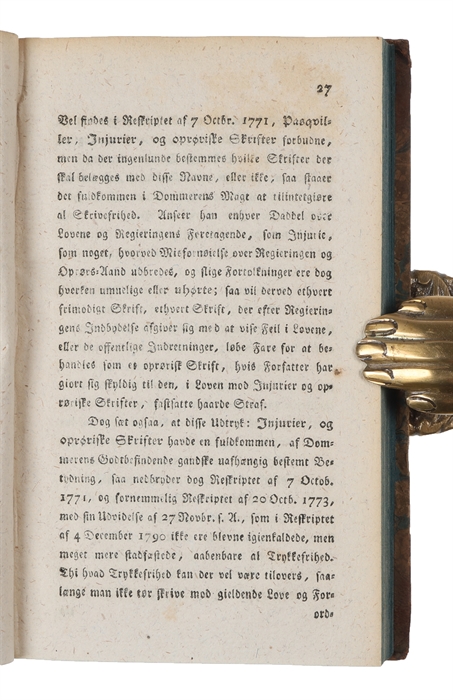 27
Vel findes i Reskriptet af 7 Octbr. 1771, Pasqvil-
ler, Injurier, og oprøriske Skrifter forbudne,
men da der ingenlunde bestemmes hvilke Skrifter der
skal belægges med disse Navne, eller ikke, saa staaer
det fuldkommen i Dommerens Magt at tilintetgiøre
al Skrivefrihed. Anseer han enhver Daddel over
Lovene og Regieringens Foretagende, som Injurie,
som noget, hvorved Misfornøielse over Regieringen og
Oprørs-Aand udbredes, og slige Fortolkninger ere dog
hverken umuelige eller uhørte; saa vil derved ethvert
frimodigt Skrift, ethvert Skrift, der efter Regierin-
gens Indbydelse afgivér sig med at vise Feil i Lovene,
eller de offentlige Indretninger, løbe Fare for at be-
handles som et oprørisk Skrift, hvis Forfatter har
giort sig skyldig til den, i Loven mod Injurier og op-
røriske Skrifter, fastsatte haarde Straf.
Dog sæt ogsaa, at disse Udtryk: Injurier, og
oprøriske Skrifter havde en fuldkommen, af Dom-
merens Godtbefindende gandske uafhængig bestemt Be-
tydning, saa nedbryder dog Reskriptet af 7 Octob.
1771, og fornemmelig Reskriptet af 20 Octb. 1773,
med sin Udvidelse af 27 Novbr. s. A., som i Reskriptet
af 4 December 1790 ikke ere blevne igienkaldede, men
meget mere stadfæstede, aabenbare al Trykkefrihed.
Thi hvad Trykkefrihed kan der vel være tilovers, saa-
længe man ikke tør skrive mod gieldende Love og For-
ord-